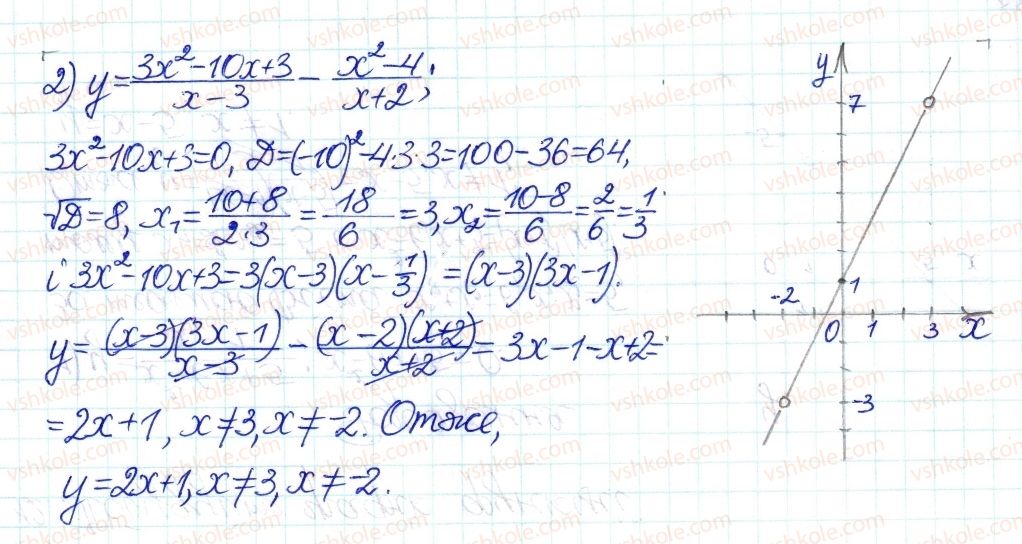 2) y = (3x² - 10x + 3)/(x - 3) - (x² - 4)/(x + 2);
3x² - 10x + 3 = 0, D = (-10)² - 4·3·3 = 100 - 36 = 64,
√D = 8, x₁ = (10 + 8)/(2·3) = 18/6 = 3, x₂ = (10 - 8)/6 = 2/6 = 1/3
і 3x² - 10x + 3 = 3(x - 3)(x - 1/3) = (x - 3)(3x - 1).
y = (x - 3)(3x - 1)/(x - 3) - (x - 2)(x + 2)/(x + 2) = 3x - 1 - x + 2 =
= 2x + 1, x ≠ 3, x ≠ -2. Отже,
y = 2x + 1, x ≠ 3, x ≠ -2.
y
7
1
-2
0 1 3 x
-3
vshkole.com